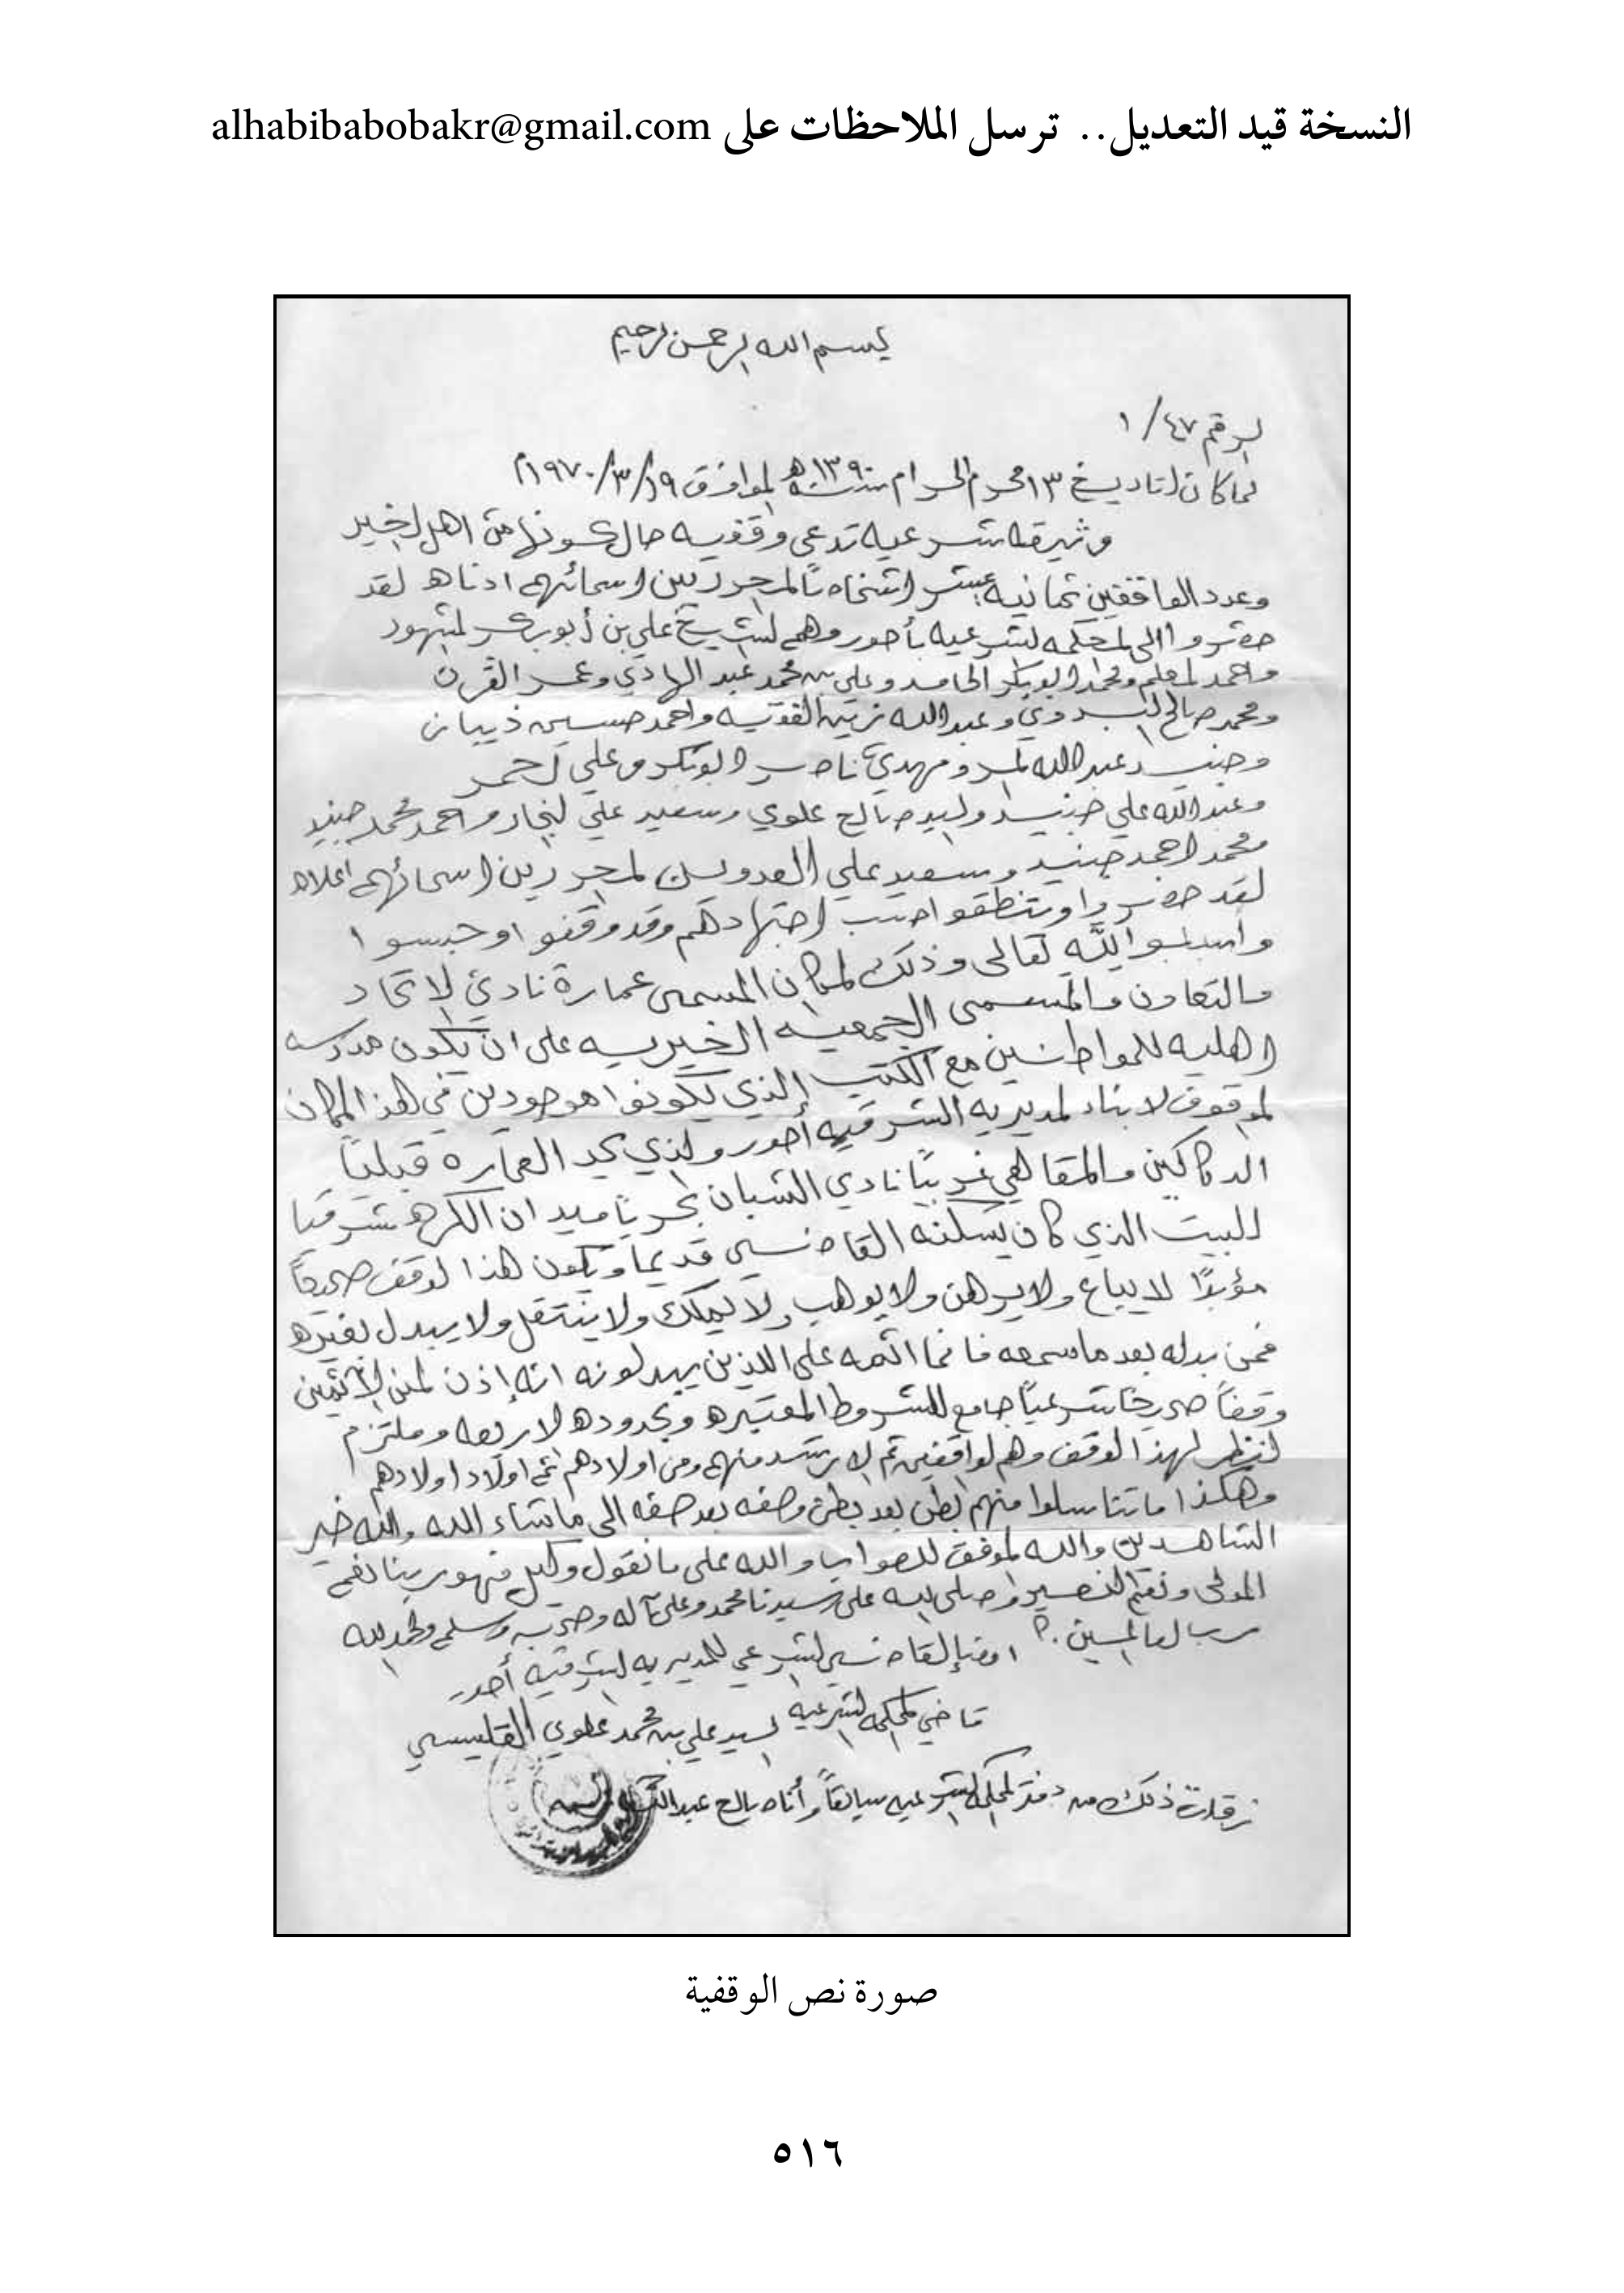 النسخة قيد التعديل.. ترسل الملاحظات على alhabibabobakr@gmail.com
بسم الله الرحمن الرحيم
الرقم ٤٧/ ١
لما كان لتاريخ ١٣ محرم الحرام سنة ١٣٩٠ه الموافق ١٩/ ٣/ ١٩٧٠م
وثيقه شرعيه تدعى وقفيه حال كونها من اهل الخير
وعدد الواقفين ثمانيه عشر اشخاصاً المحررين اسمائهم ادناه لقد
حضروا الى المحكمه الشرعيه بأحور وهم الشيخ علي بن أبوبكر المشهور
واحمد المعلم ومحمد ابوبكر الحامد وعلي بن محمد عبد الهادي وعمر القرن
ومحمد صالح البدوي وعبدالله زين الفقيه واحمد حسين ذيبان
وجنيد عبدالله المر ومهدي ناصر ابوبكر وعلي احمر
وعبدالله علي جنيد وليد صالح علوي وسعيد علي النجار واحمد محمد جنيد
محمد احمد جنيد وسعيد علي العدويل المحررين اسمائهم اعلاه
لقد حضروا وتنطقوا حسب اجتهادهم وقد وقفوا وحبسوا
لله تعالى وذلك المكان المسمى عمارة نادي الاتحاد
والتعاون والمسمى الجمعيه الخيريه على ان يكون مدرسه
اهليه للمواطنين مع الكتب الذي يكونوا موجودين في هذا المكان
الموقوف لابناء المديريه الشرقيه أحور والذي يحد العماره قبلياً
الدكاكين والمقاهي غربياً نادي الشبان بحرياً ميدان الكره شرقيا
البيت الذي كان يسكنه القاضي قديما ويكون هذا الوقف صحيحاً
مؤبداً لا يباع ولا يرهن ولا يوهب ولا يملك ولا ينتقل ولا يبدل بغيره
فمن بدله بعد ما سمعه فانما اثمه على الذين يبدلونه انه إذن لمن الآثمين
وقفاً صحيحاً شرعياً جامع للشروط المعتبره وبحدوده الاربعه وملتزم
لنظر لهذا الوقف وهم الواقفين ثم الارشد منهم ومن اولادهم ثم اولاد اولادهم
وهكذا ما تناسلوا منهم بطن بعد بطن وصفه بعد صفه الى ما شاء الله والله خير
الشاهدين والله الموفق للصواب والله على ما نقول وكيل فهو ربنا نعم
المولى ونعم النصير وصلى الله على سيدنا محمد وعلى آله وصحبه وسلم والحمد لله
رب العالمين. امضا القاضي الشرعي للمديريه الشرقيه أحور
قاضي المحكمه الشرعيه السيد علي بن محمد علوي القليسي
نقلت ذلك من دفتر المحكمه الشرعيه سابقاً وأنا صالح عبدالله
صورة نص الوقفية
٥١٦